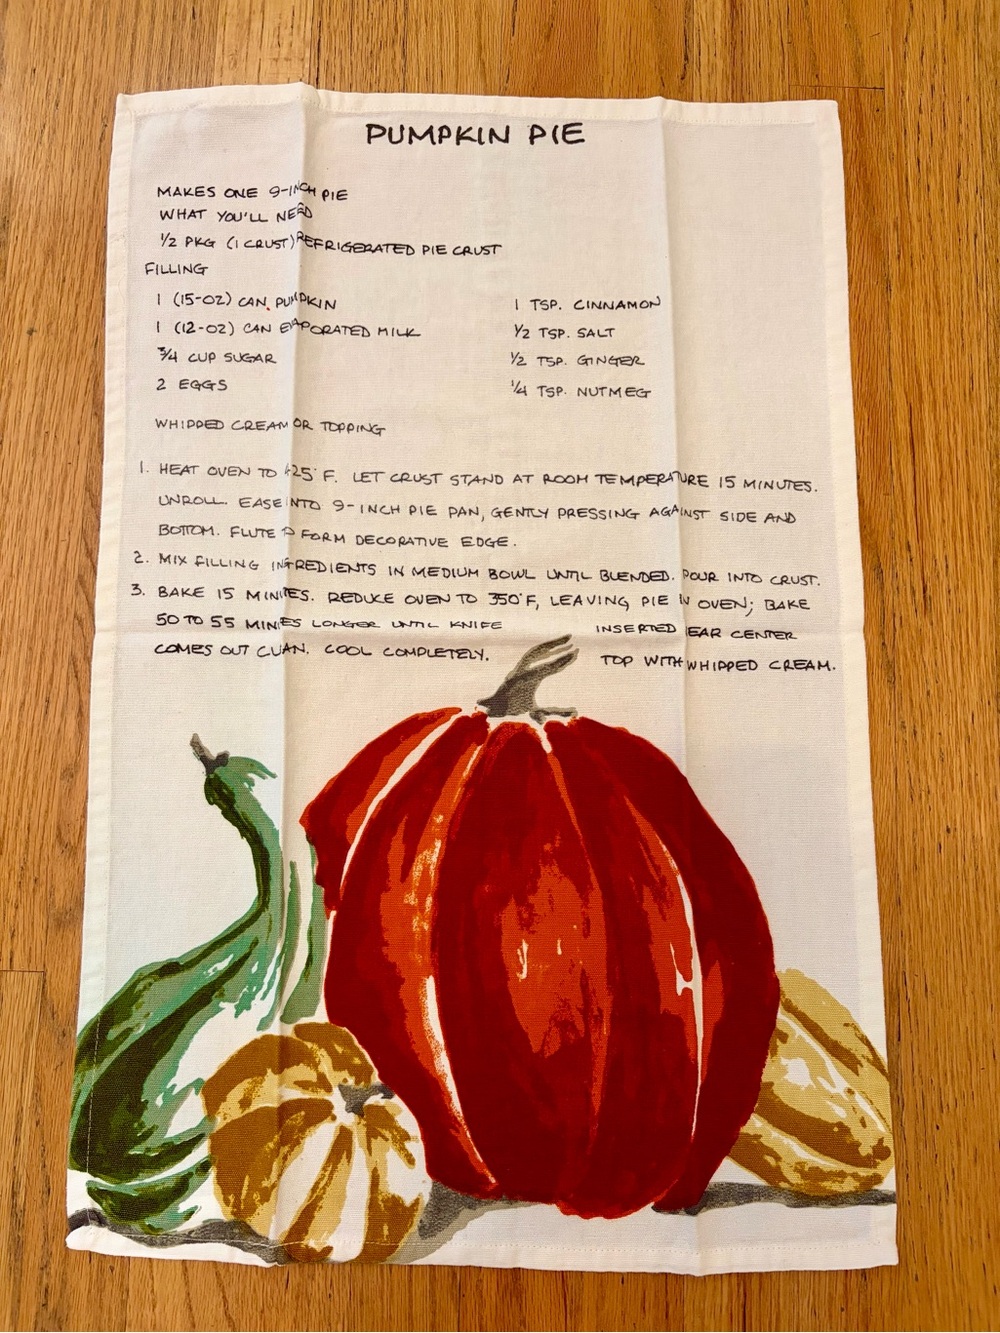 PUMPKIN PIE
MAKES ONE 9-INCH PIE
WHAT YOU'LL NEED
1/2 PKG (1 CRUST) REFRIGERATED PIE CRUST
FILLING
1 (15-OZ) CAN PUMPKIN
1 (12-OZ) CAN EVAPORATED MILK
3/4 CUP SUGAR
2 EGGS
1 TSP. CINNAMON
1/2 TSP. SALT
1/2 TSP. GINGER
1/4 TSP. NUTMEG
WHIPPED CREAM OR TOPPING
1. HEAT OVEN TO 425°F. LET CRUST STAND AT ROOM TEMPERATURE 15 MINUTES.
UNROLL. EASE INTO 9-INCH PIE PAN, GENTLY PRESSING AGAINST SIDE AND
BOTTOM. FLUTE TO FORM DECORATIVE EDGE.
2. MIX FILLING INGREDIENTS IN MEDIUM BOWL UNTIL BLENDED. POUR INTO CRUST.
3. BAKE 15 MINUTES. REDUCE OVEN TO 350°F, LEAVING PIE IN OVEN; BAKE
50 TO 55 MINUTES LONGER UNTIL KNIFE INSERTED NEAR CENTER
COMES OUT CLEAN. COOL COMPLETELY. TOP WITH WHIPPED CREAM.